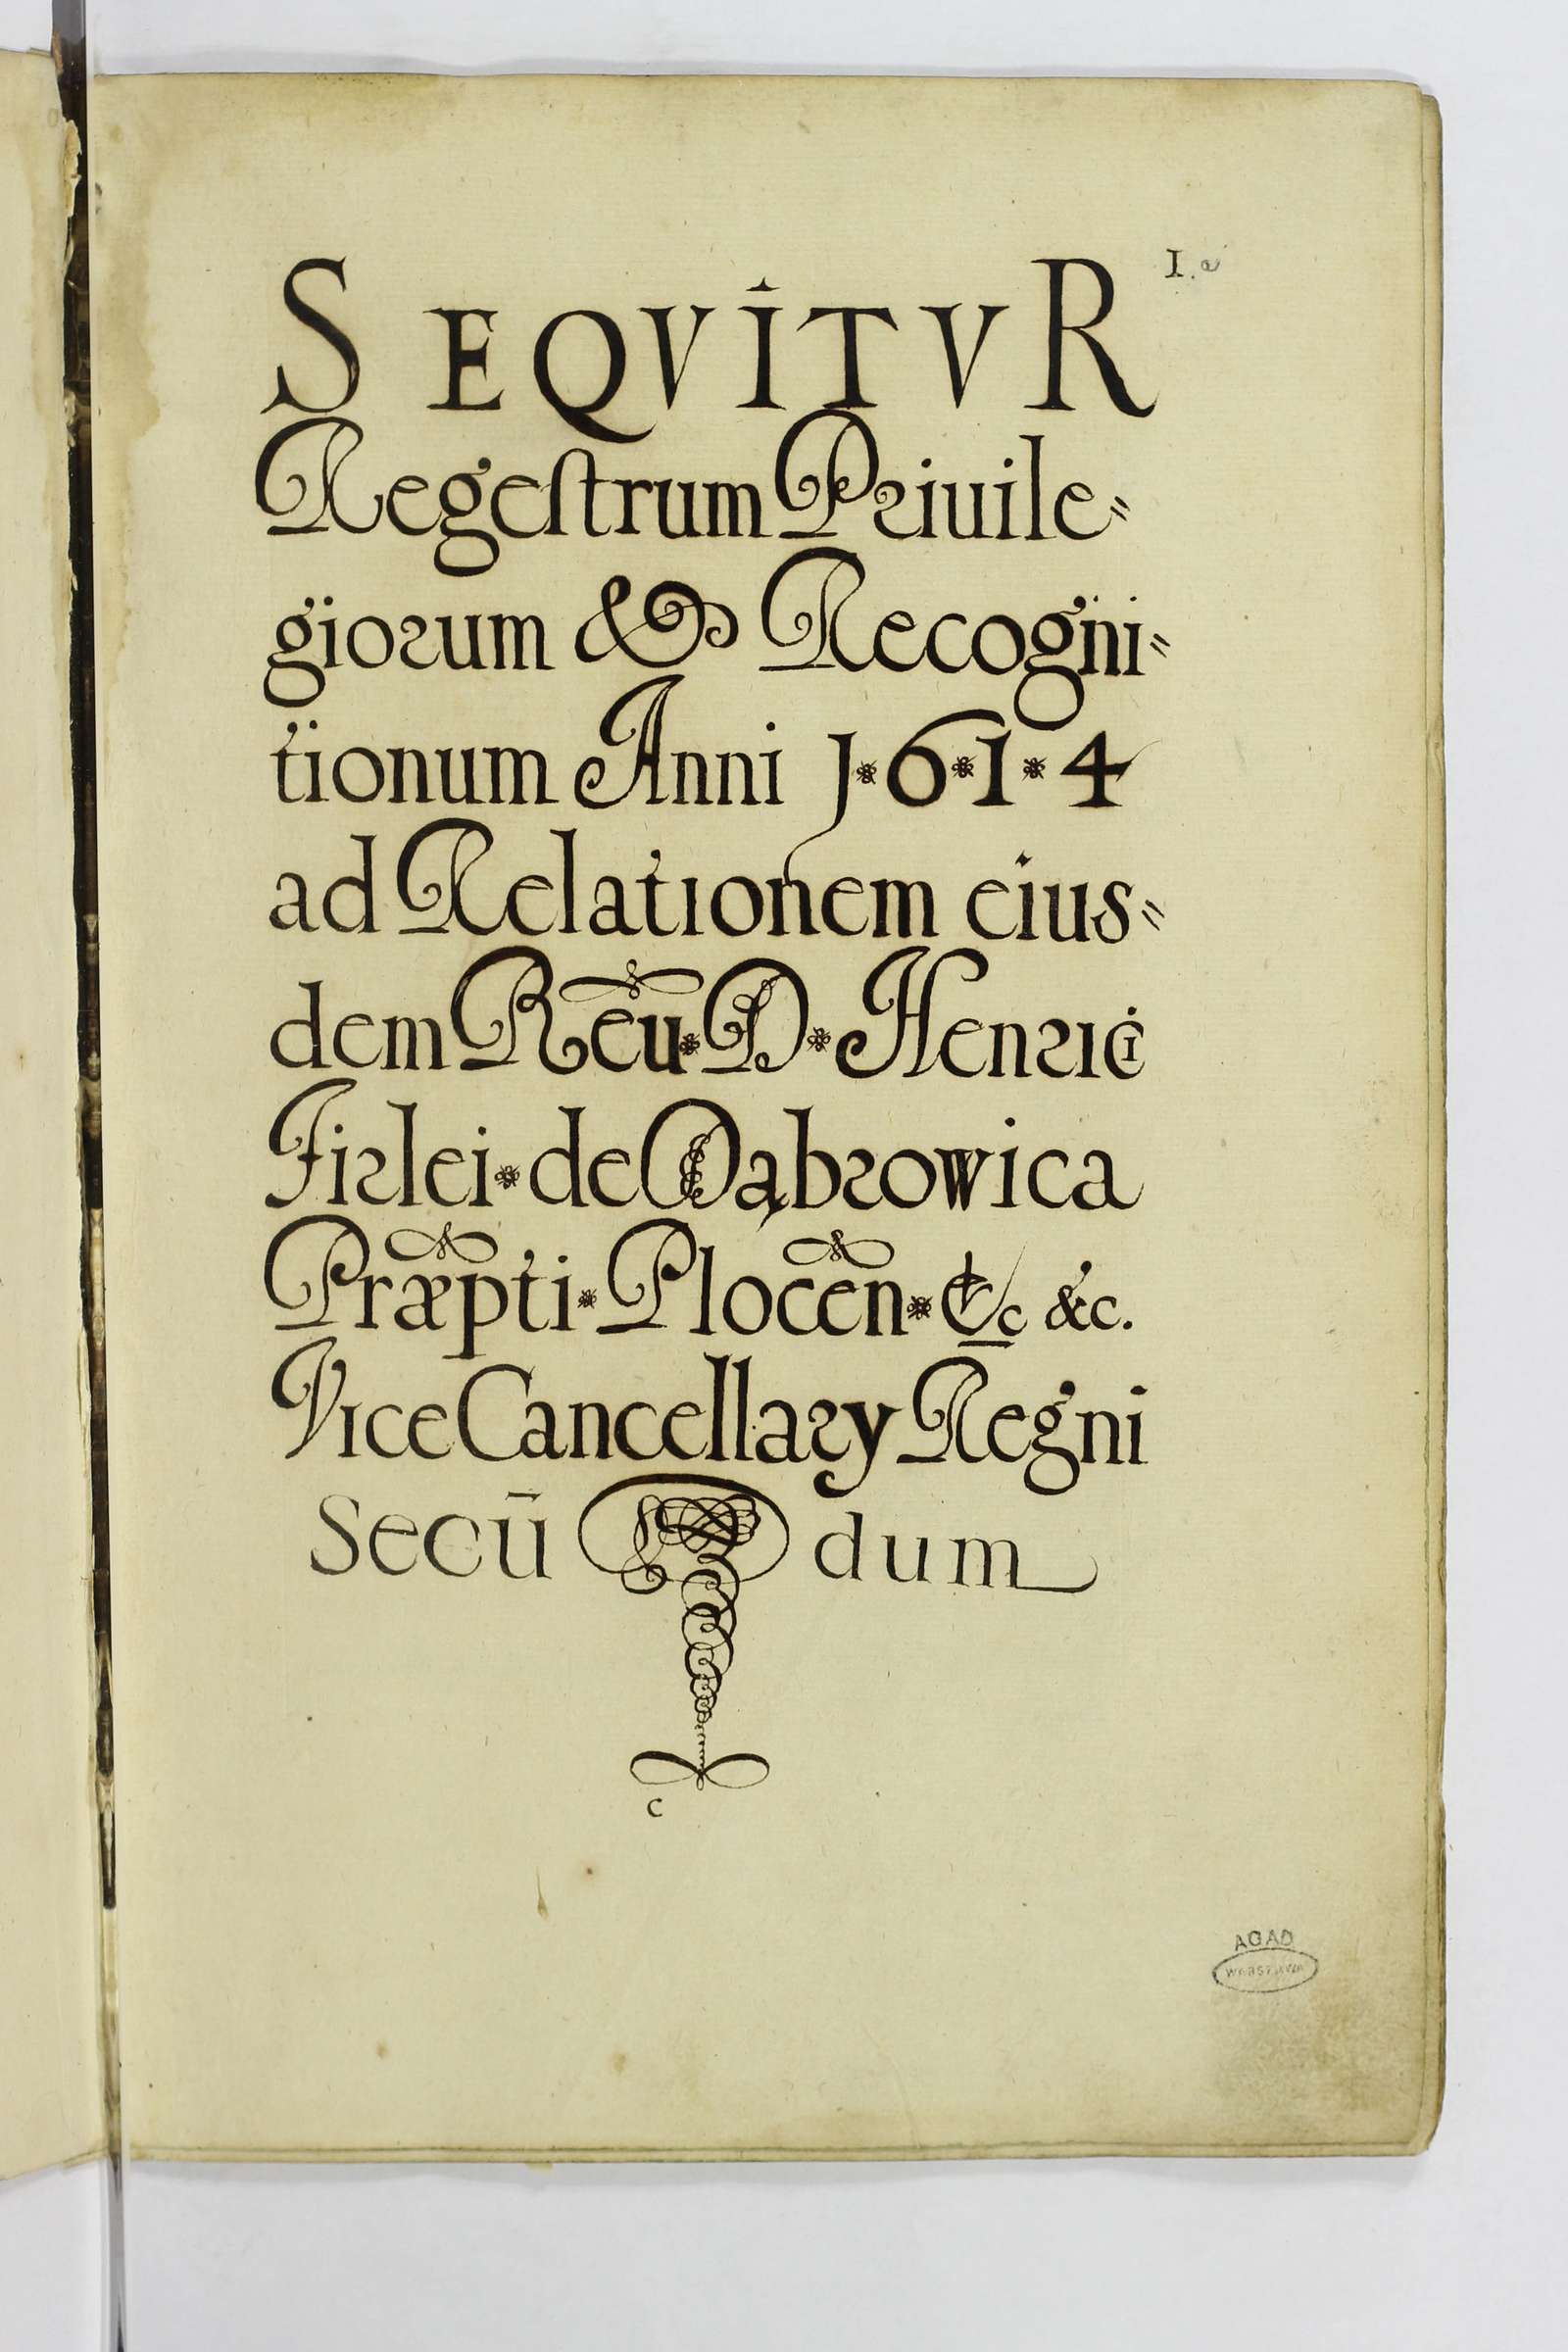 I. a
SEQVITVR
Regestrum Priuile=
giorum & Recogni=
tionum Anni 1*6*1*4
ad Relationem eius=
dem Reū*D*Henrici
Firlei*de Dąbrowica
Præpti*Plocen̄*&c &c.
Vice Cancellary Regni
Secū dum
c
AGAD
WARSZAWA